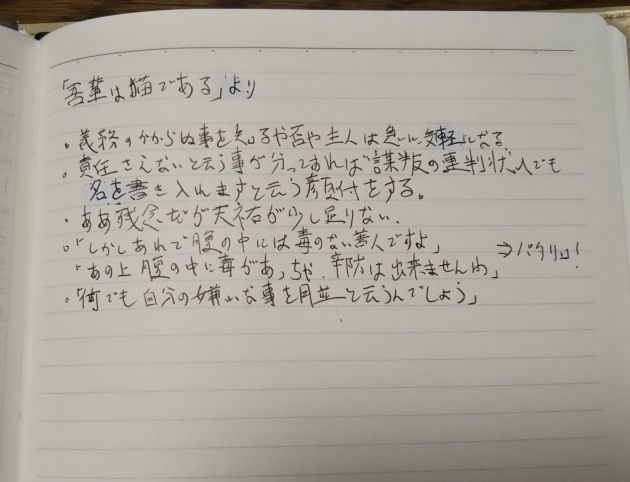 「吾輩は猫である」より
・義務のかからぬ事を知るや否や主人は急に気軽になる
・責任さえないと云う事が分っておれば謀叛の連判状へでも
名を書き入れますと云う顔付をする。
・ああ残念だが天祐が少し足りない.
・「しかしあれで腹の中には毒のない善人ですよ」
「あの上腹の中に毒があっちゃ、辛防は出来ませんわ」
⇒パタリロ!
・「何でも自分の嫌いな事を月並と云うんでしょう」